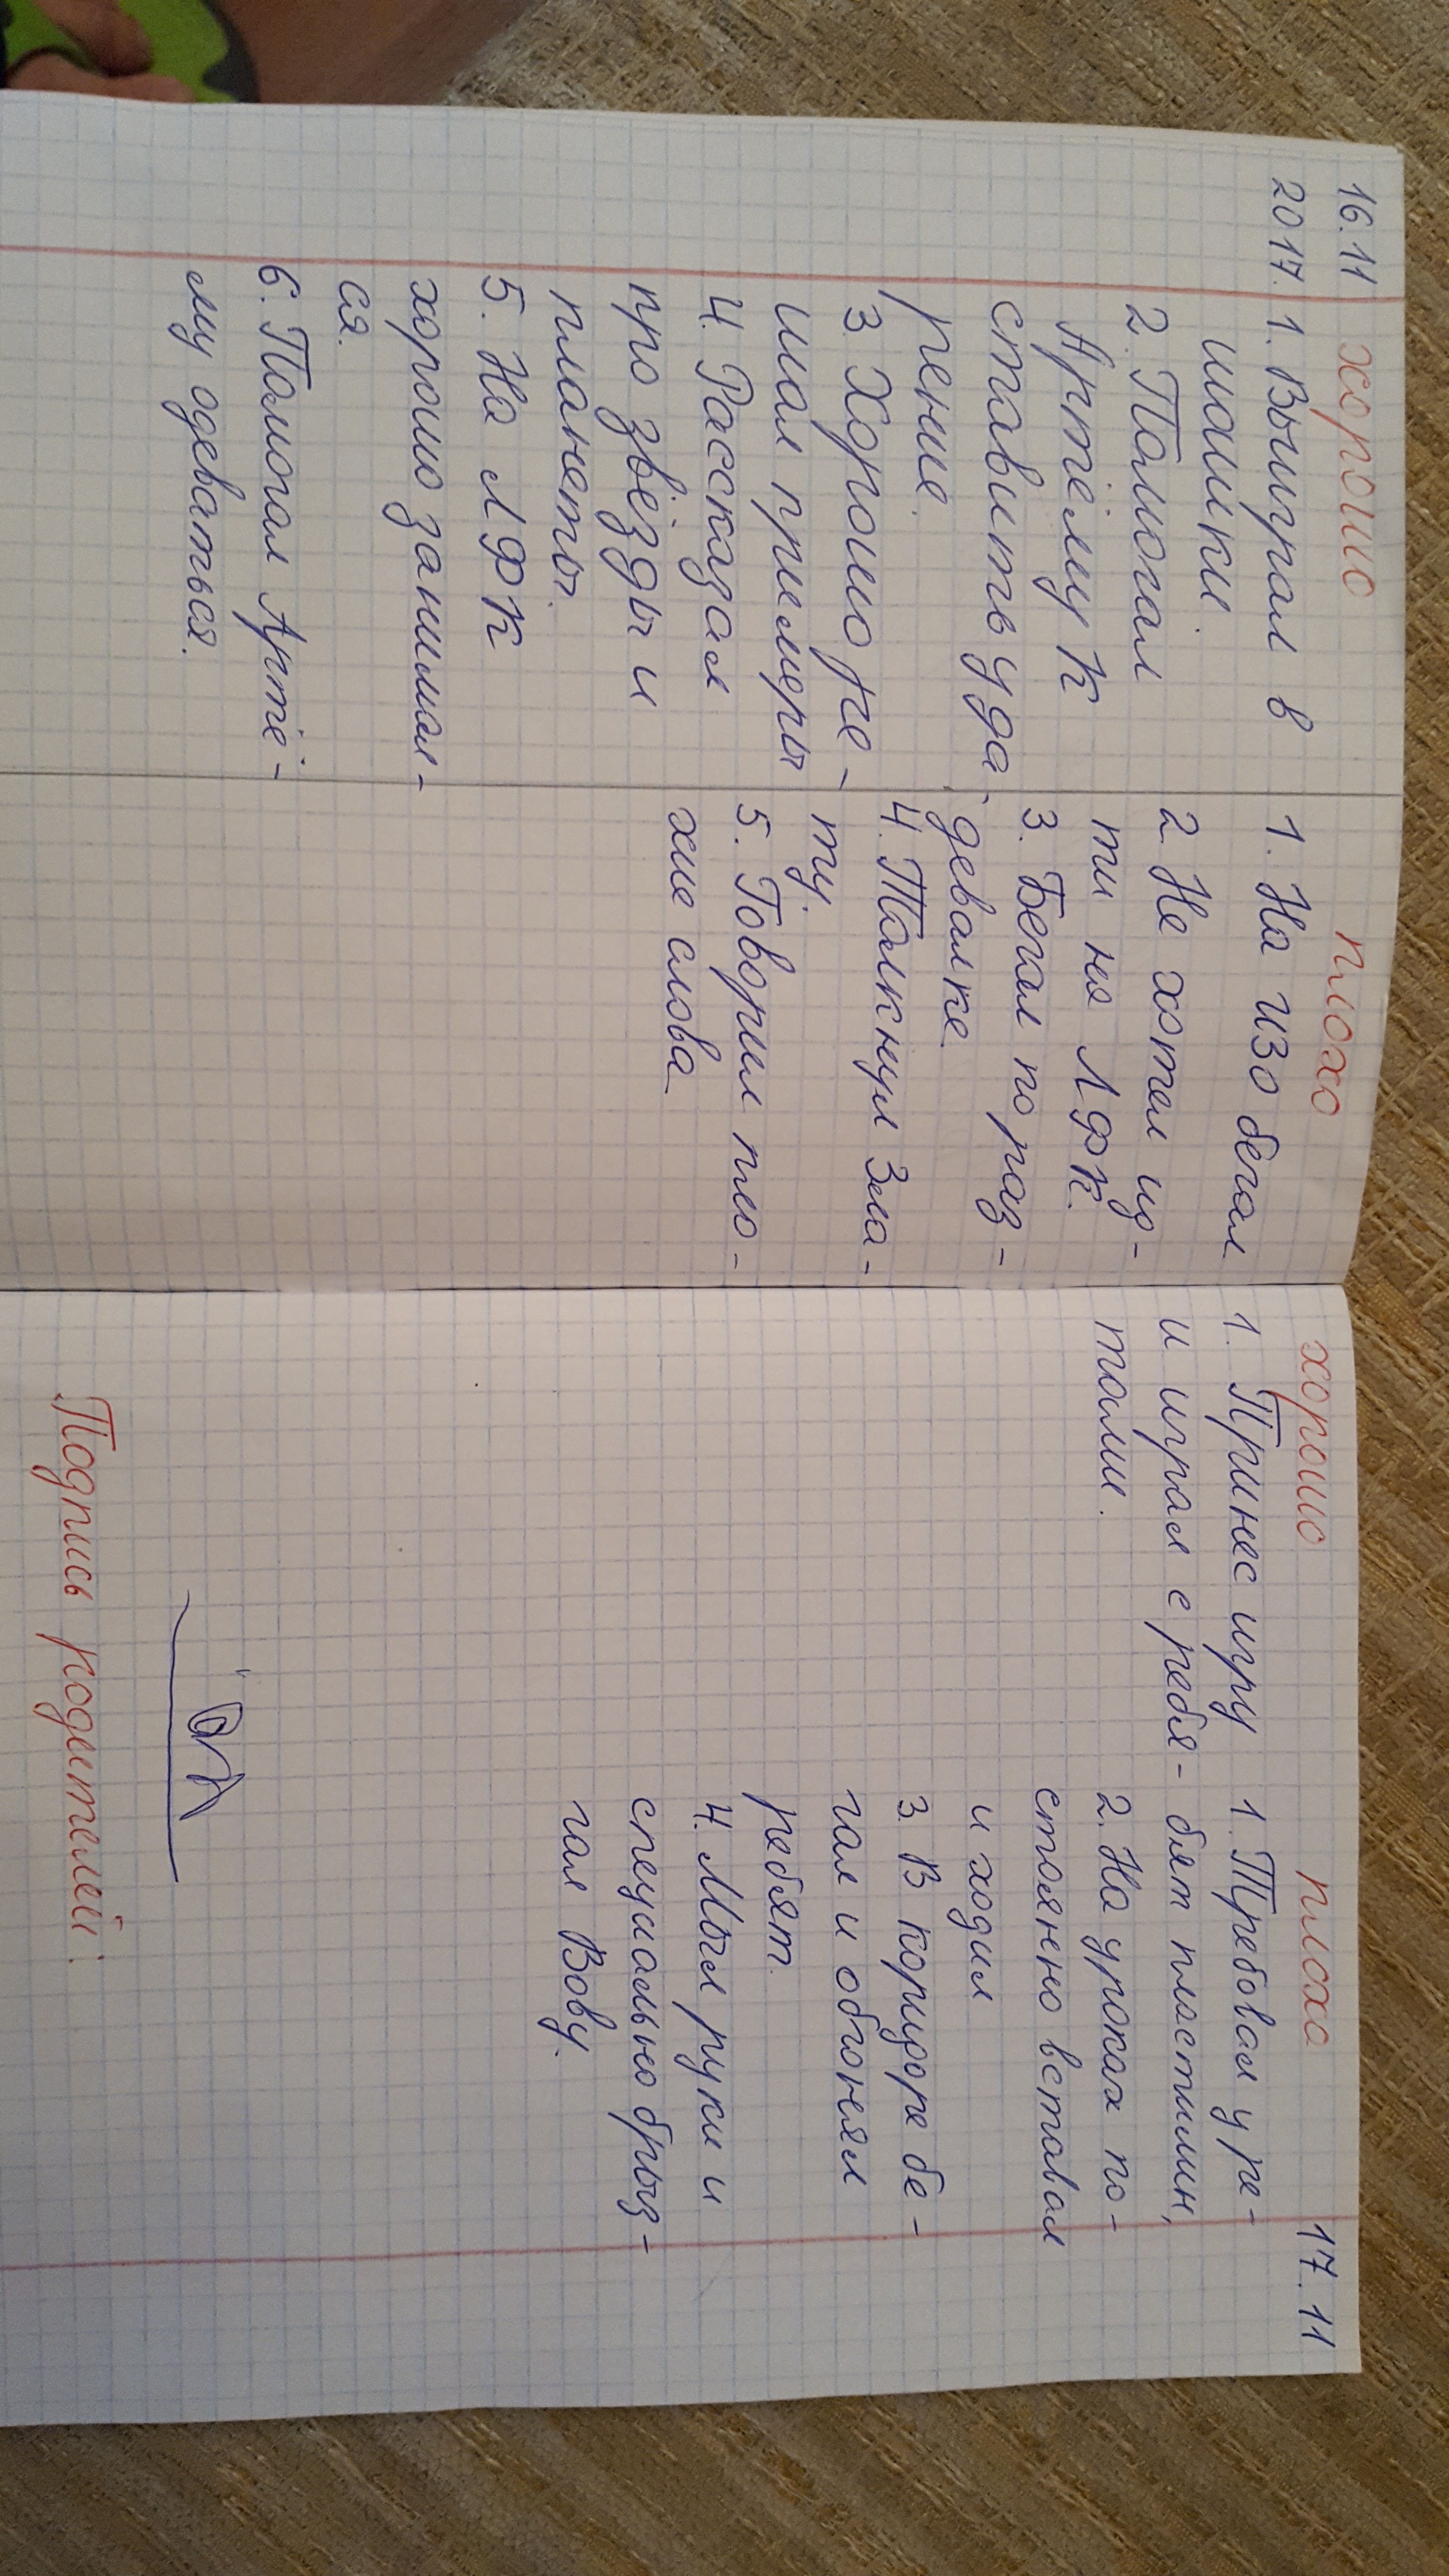 16.11
2017.
хорошо
1. Выиграл в
шашки.
2. Помогал
Артёму
ставить уда-
рение.
3. Хорошо ре-
шал примеры
4. Рассказал
про звёзды и
планеты.
5. На ЛФК
хорошо занимал-
ся.
6. Помогал Артё-
му одеваться.
плохо
1. На ИЗО бегал
2. Не хотел ид-
ти на ЛФК.
3. Бегал по раз-
девалке.
4. Толкнул Зла-
ту.
5. Говорил пло-
хие слова.
хорошо
1. Принес игру
и играл с ребя-
тами.
Подпись родителей:
плохо
17.11
1. Требовал у ре-
бят пластилин,
2. На уроках по-
стоянно вставал
и ходил
3. В коридоре бе-
гал и обгонял
ребят.
4. Мыл руки и
специально брыз-
гал Вову.